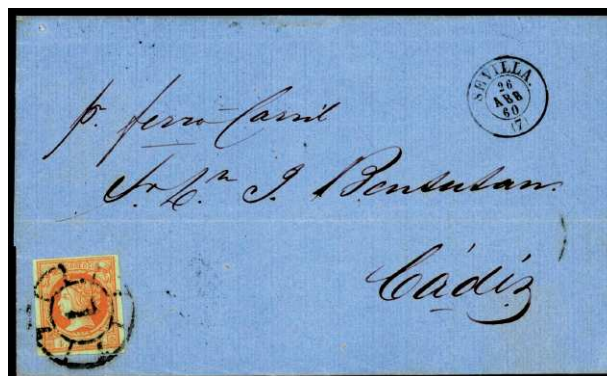 SEVILLA.
26
ABR
60
(7)
p. ferro-Carril
Sr. Dn J. Bensusan
Cádiz